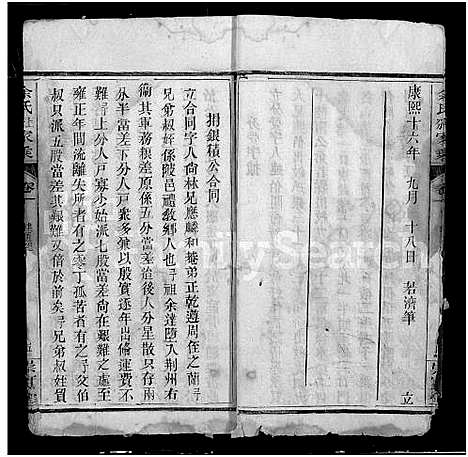 康熙十六年 九月 十八日 若濟筆 立
捐銀積公合同
立合同字人尚林兄應麟和權弟正乾遵周侄之蘭等
兄弟叔侄係陂邑禮敎鄉人也等祖余達墮入荆州右
衛其軍務糧差原係五分當差迨後人分星散只存兩
分半當差下分人戶衆多兼以殷實逐年出俻運費不
難得上分人戶寡少始派七股當差尚在艱難之處至
雍正年間流離失所者有之零丁孤苦者有之等交伯
叔只派五股當差其艱難又倍於前矣等兄弟叔姪質
余氏
卷一
FamilySearch